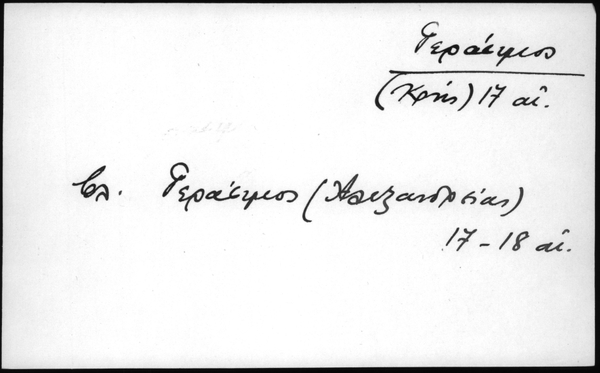 Γεράσιμος
(Κρής) 17 αἰ.
βλ. Γεράσιμος (Ἀλεξανδρείας)
17-18 αἰ.